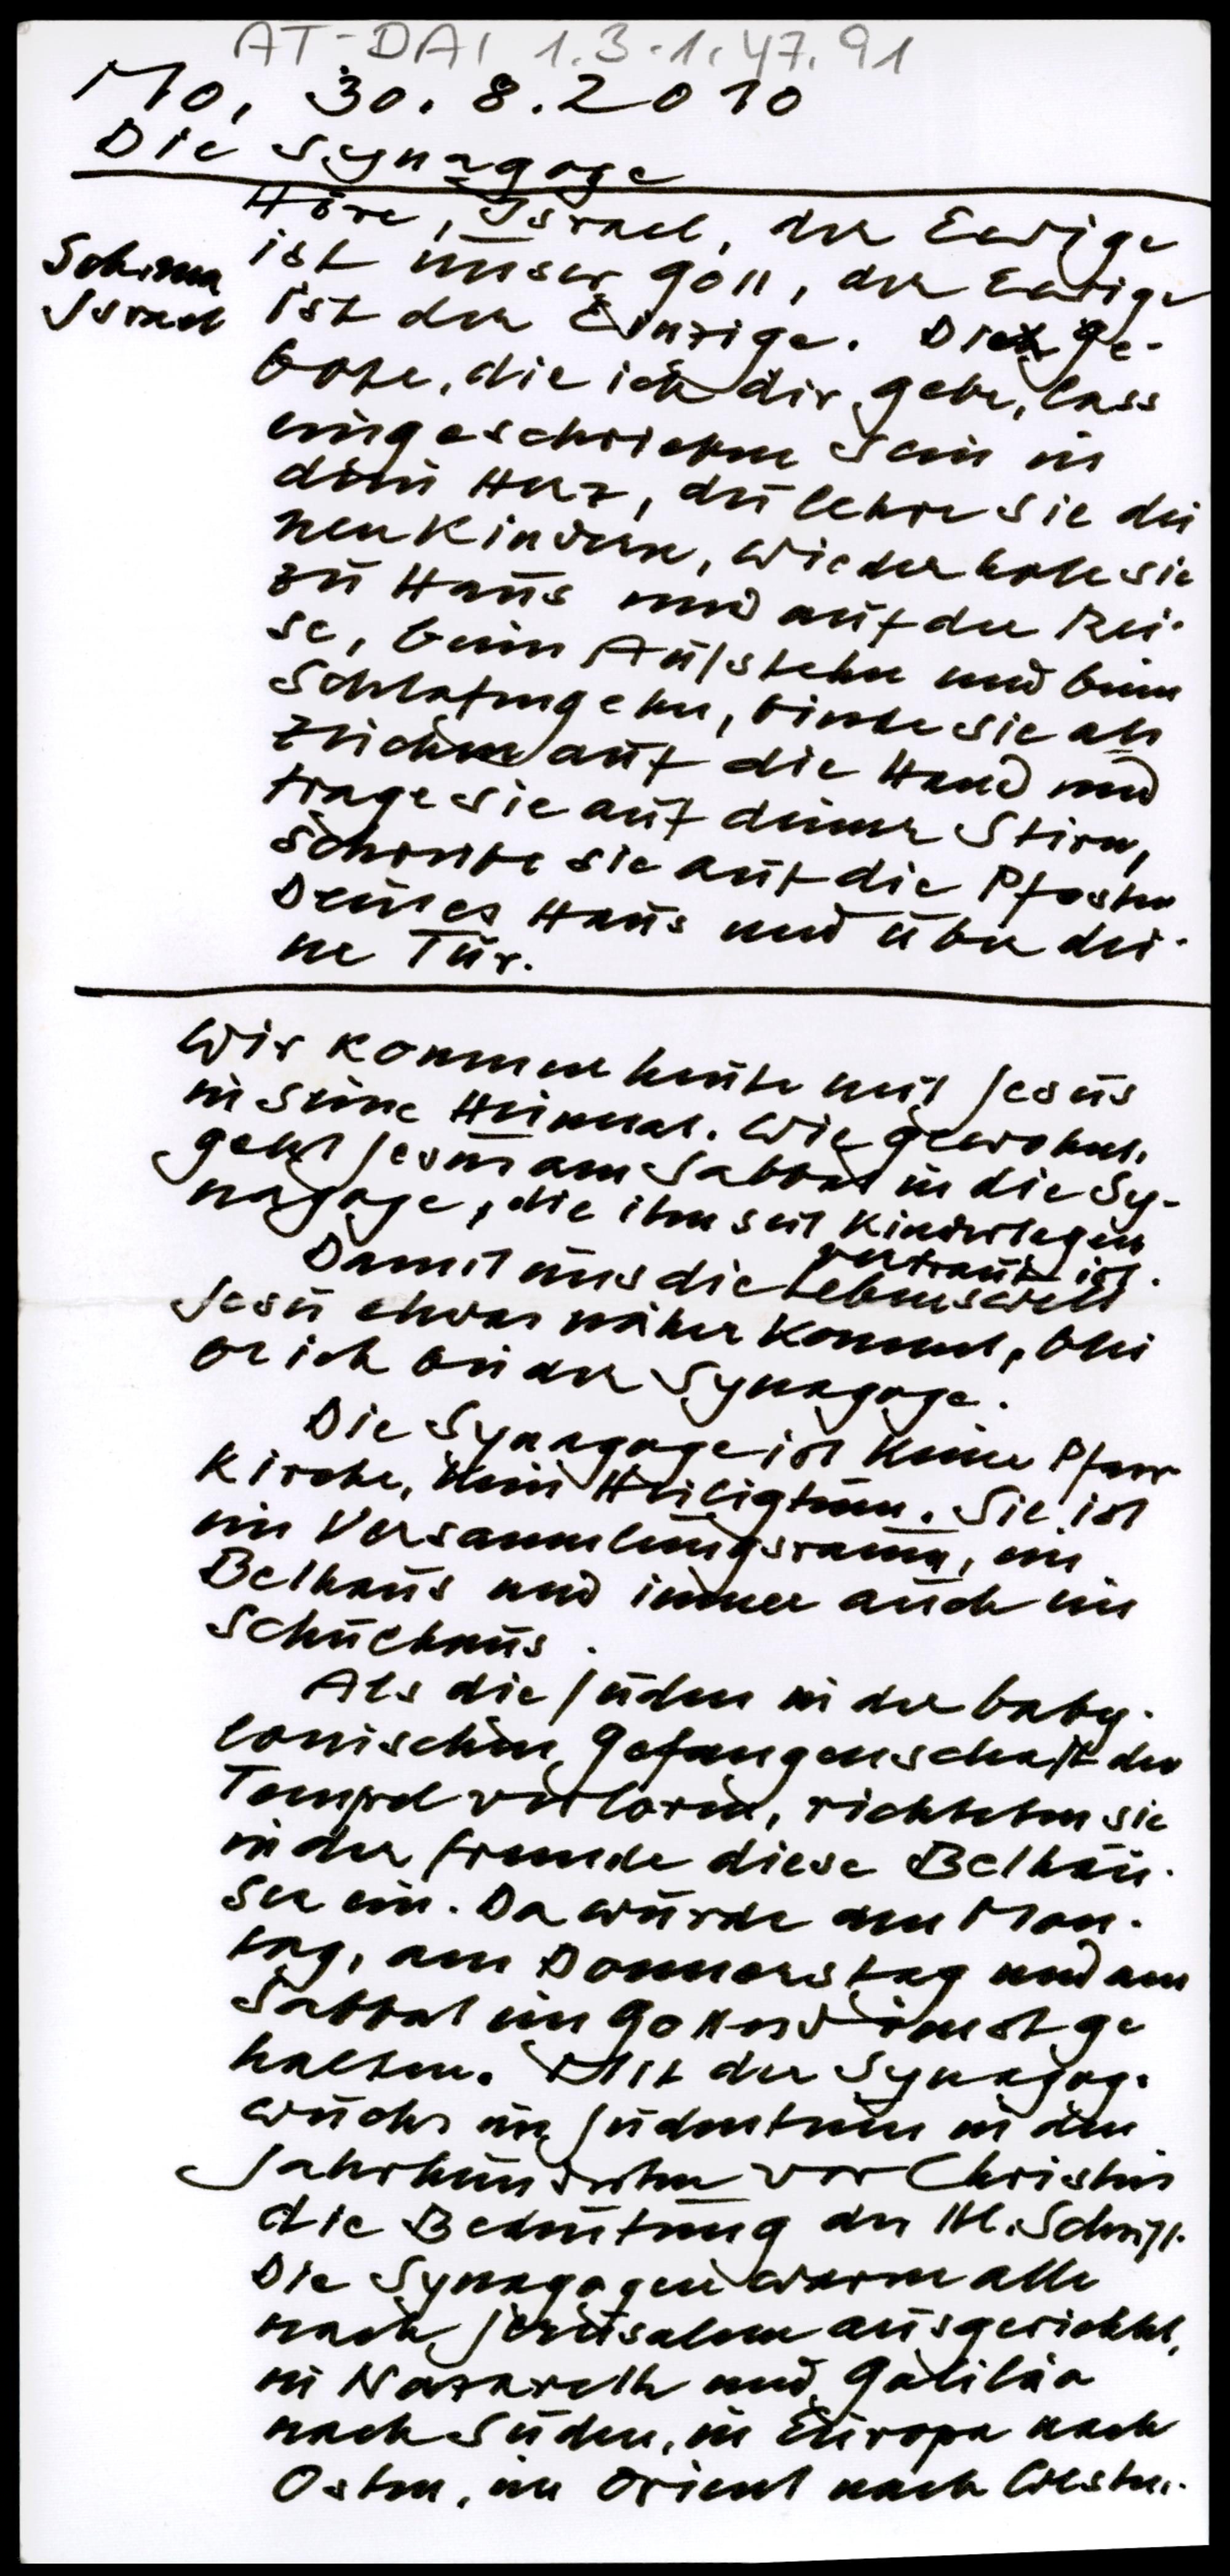 AT-DAI 1.3-1.47.91
Mo, 30.8.2010
Die Synagoge
Höre, Israel, der Ewige
ist unser Gott, der Ewige
Schma
Israel
ist der Einzige. Die Ge-
bote, die ich dir gebe, lass
eingeschrieben sein in
dein Herz, du lehre sie dei
nen Kindern, wiederhole sie
zu Haus und auf der Rei-
se, beim Aufstehn und beim
Schlafengehn, binde sie als
Zeichen auf die Hand und
trage sie auf deiner Stirn,
schreibe sie auf die Pfosten
Deines Haus und über dei-
ne Tür.
Wir kommen heute mit Jesus
in seine Heimat. Wie gewohnt,
geht Jesus am Sabbat in die Sy-
nagoge, die ihm seit Kindertagen
vertraut ist.
Damit uns die Lebenswelt
Jesu etwas näher kommt, blei
be ich bei der Synagoge.
Die Synagoge ist keine Pfarr
kirche, kein Heiligtum. Sie ist
ein Versammlungsraum, ein
Bethaus und immer auch ein
Schulhaus.
Als die Juden in der baby-
lonischen Gefangenschaft den
Tempel verloren, richteten sie
in der Fremde diese Bethäu-
ser ein. Da wurde am Mon-
tag, am Donnerstag und am
Sabbat ein Gottesdienst ge
halten. Mit der Synagog.
wuchs im Judentum in den
Jahrhunderten vor Christus
die Bedeutung der Hl. Schrift.
Die Synagogen waren alle
nach Jerusalem ausgerichtet,
in Nazareth und Galiläa
nach Süden, in Europa nach
Osten, im Orient nach Westen.